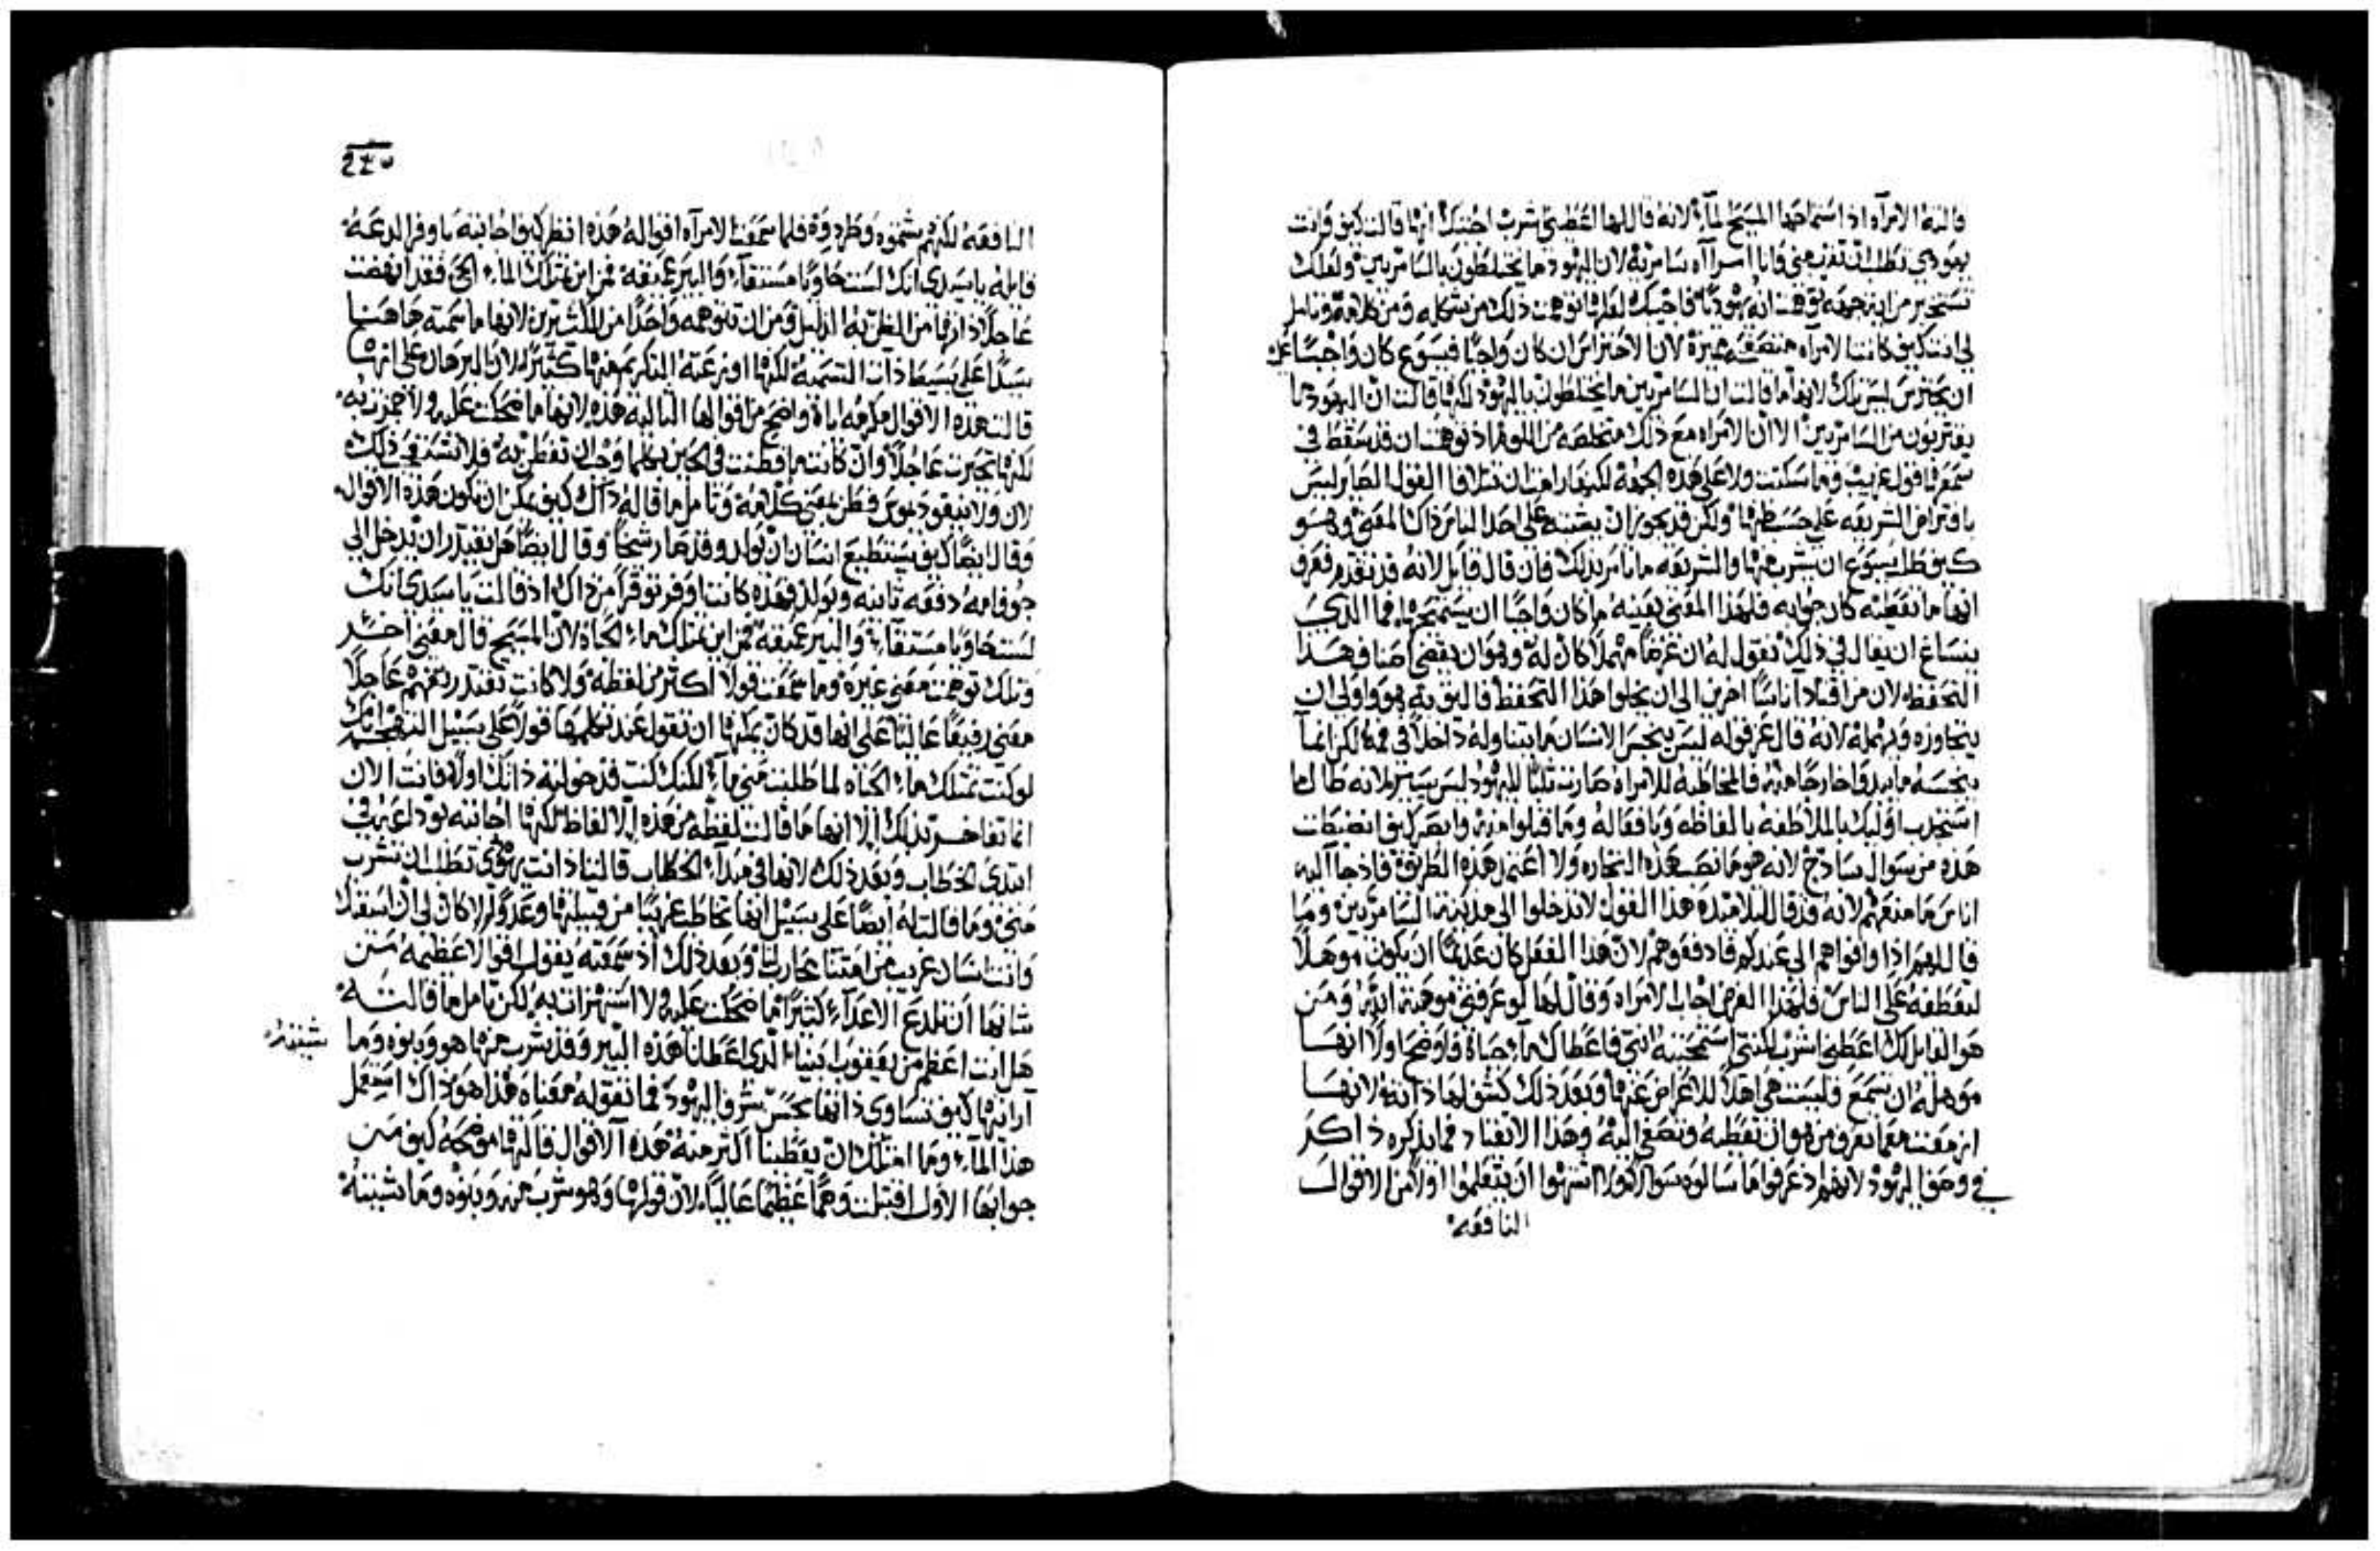 قالته الامرآه اذ استماحها المسيح مآءً لانه قال لها اعطيني اشرب اجتنبك انها قالت كيف وانت
يهودي تطلب ان تشرب مني وانا امرآه سامريه لان اليهود ما يختلطون بالسامريين ولعلك
تستخبر من اية جهه توهمت انه يهوديًا فاجيبك لعلها توهمت ذلك من شكله ومن كلامه وتامل
لي انت كيف كانت الامرآه متصفه مميزة لان الاحتراس ان كان واجبًا فيسوع كان واجبًا عليه
ان يحترس ليس تلك لانها ما قالت ان السامريين ما يختلطون باليهود لكنها قالت ان اليهود ما
يقتربون من السامريين الا ان الامراه مع ذلك متخلصه من اللوم اذ توهمت ان قد سقط في
سمعها قول غريب وما سكتت ولا على هذه الجهة لكنها رامت ان تتلافا الفول الصاير ليس
بافتراض الشريعه على حسب ظنها ولكن قد يجوز ان يشتبه على احد الناس ذاك المعنى وهو
كيف طلب يسوع ان يشرب منها والشريعه ما تامر بذلك فان قال قايل لانه قد تقدم فعرف
انها ما تعطيه كان جوابه فلهذا المعنى بعينه ما كان واجبًا ان يستميحها فما الذي
ينساغ ان يقال في ذلك نقول له ان غرضًا مهملاً كان له وهو ان يقضي هنا وهذا
التحفظ لان من اقتاد اناسًا اخرين الى ان يحلوا هذا التحفظ فاليق به هو واولى ان
يتجاوزه ويهمله لانه قال عز قوله ليس ينجس الانسان ما يتناوله داخلاً في فمه لكن انما
ينجسه ما يبدوا خارجًا منه فالمخاطبه للامراه صارت ثلبًا لليهود ليس يسير لانه طال ما
استجذب اوليك بالملاطفه بالفاظه وبافعاله وما قبلوا منه وابصر كيف انضبطت
هذه من سوال ساذج لانه هو ما نصب هذه التجاره ولا اعتمد هذه الطريقة فاذ جاآ اليه
اناس ما منعهم لانه وقد قال لتلامتده هذا القول لاتدخلوا الى مدينة السامريين وما
قال لهم اذا وافواهم الى عندكم فادفعوهم لان هذا الفعل كان عديمًا ان يكون موهلاً
لتعطفه على الناس فلهذا الغرض اجاب الامراه وقال لها لو عرفتي موهبة الله ومن
هو القايل لك اعطيني اشرب لكنتي استمحتيه انتي فاعطاك مآء حياة فاوضح اولاً انها
موهله ان تسمع وليست هي اهلاً للاعراض عنها وبعد ذلك كشف لها ذاته لانها
ازمعت معما تعرف من هو ان تعطيه وتصغي اليه وهذا الانقياد فما يذكره ذاكر
في وصف اليهود لانهم اذ عرفوا ما سالوه سوالاً ولا اشتهوا ان يتعلموا اولاً من الاقوال
النافعه
٢٤٥
النافعه لكنهم شتموه وطردوه فلما سمعت الامرآه اقواله هذه انظر كيف اجابته باوفر الدعه
قايله يا سيدي انك لست حاويًا مستقآءً والبير عميقه فمن اين تمتلك المآء الحي فقد انهضت
عاجلاً ذاتها من الظن به الذليل من ان تتوهمه واحدًا من الكثيرين لانها ما سمته هاهنا
سيدًا على بسيط ذات التسميه لكنها اوزعته التكريم منها كثيرًا لان البرهان على انها
قالت هذه الاقوال مكرمه اياه واضح من اقوالها التاليه هذه لانها ما ضحكت عليه ولا هزت به
لكنها تحيرت عاجلاً وان كانت ما فطنت في الحين بكلما وجب ان تفطن به فلا تشتد في ذلك
لان ولا نيقوديموس فطن بمعنى كلامه وتامل ما قاله ذاك كيف يمكن ان تكون هذه الاقوال
وقال ايضًا كيف يستطيع انسان ان يولد وقد صار شيخًا وقال ايضًا هل يقتدر ان يدخل الى
جوف امه دفعه ثانيه ويولد فهذه كانت اوفر توقرًا من ذاك اذ قالت يا سيدي انك
لست حاويًا مستقآءً والبير عميقه فمن اين تمتلك مآء الحياة لان المسيح قال معنى اخر
وتلك توهمت معنى غيره وما سمعت قولاً اكثر من لفظه ولا كانت تقتدر تفهم عاجلاً
معنى رفيعًا عاليًا على انها قد كان يمكنها ان تقول عند تكلمها قولاً على سبيل التهجم انك
لو كنت تمتلك مآء الحياه لما طلبت مني مآءً لكنك كنت قد خولته ذاتك اولاً فانت الان
انما تفاخر بذلك الا انها ما قالت لفظه من هذه الالفاظ لكنها اجابته بوداعة في
ابتدى الخطاب وبعد ذلك لانها في مبدآء الخطاب قالت اذ انت يهودي تطلب ان تشرب
مني وما قالت له ايضًا على سبيل انها تخاطب غريبًا من قبيلتها وعدوًا لا كان لي ان اسقيك
وانت انسان غريب من امتنا محاربًا وبعد ذلك اذ سمعته يقول اقوالاً عظيمه من
شانها ان تلدع الاعدآء كثيرًا ما ضحكت عليه ولا استهزات به لكن تامل ما قالت له
هل انت اعظم من يعقوب ابينا الذي اعطانا هذه البير وقد شرب منها هو وبنوه وما شيته
آراتها كيف تساوي ذاتها بحسن شرف اليهود فما تقوله معناه هذا هو ذاك استعمل
هذا المآء وما امتلك ان يعطينا اكثر منه هذه الاقوال قالتها موضحه كيف من
جوابها الاول اقتبلت وهمًا عظيمًا عاليًا لان قولها وهو شرب منه وبنوه وما شيته